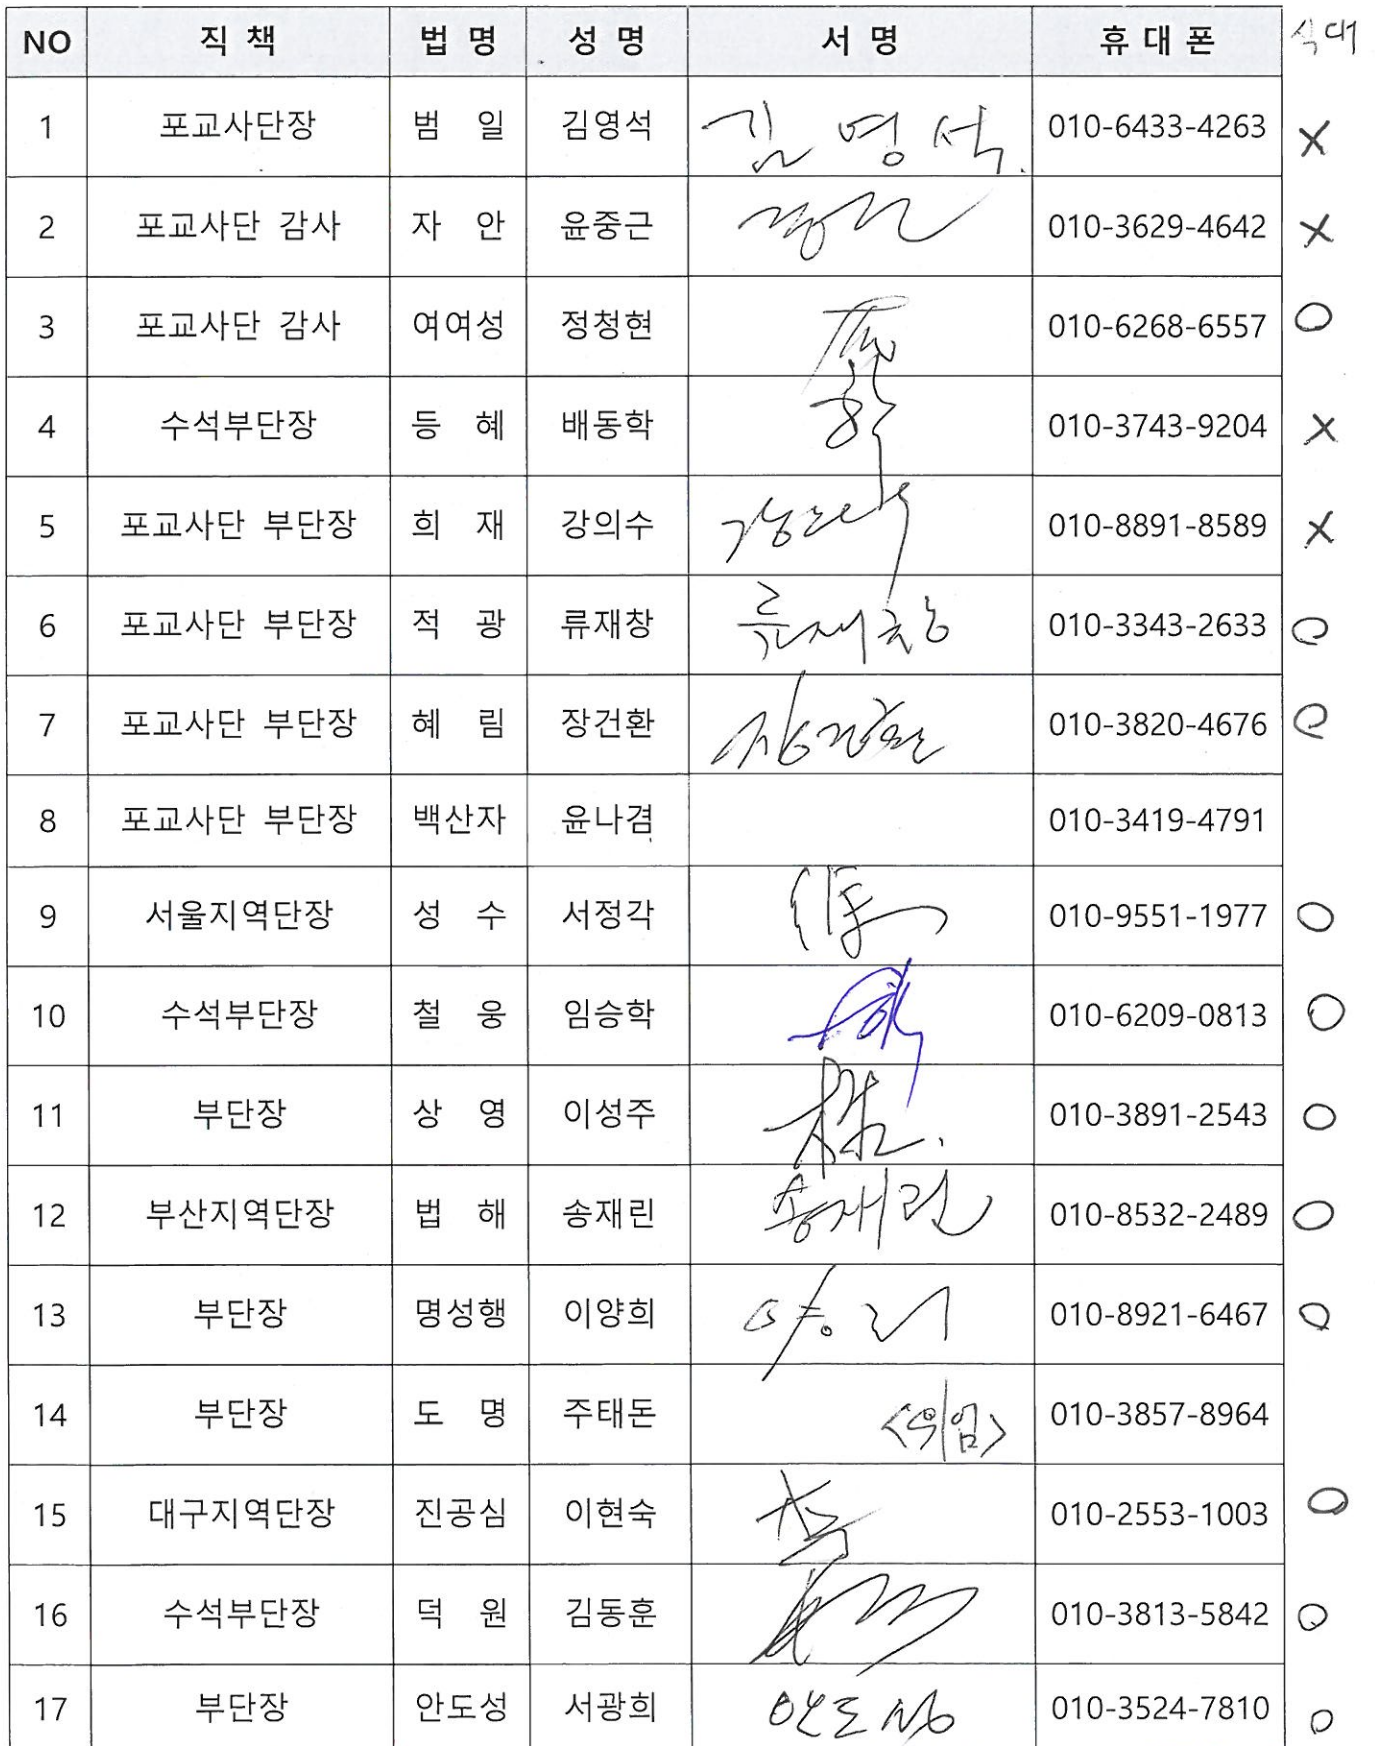 NO 직 책 법 명 성 명 서 명 휴 대 폰 식대
1 포교사단장 범 일 김영석 김 영 석 010-6433-4263 X
2 포교사단 감사 자 안 윤중근 010-3629-4642 X
3 포교사단 감사 여여성 정청현 010-6268-6557 O
4 수석부단장 등 혜 배동학 학 010-3743-9204 X
5 포교사단 부단장 희 재 강의수 강의수 010-8891-8589 X
6 포교사단 부단장 적 광 류재창 류재창 010-3343-2633 O
7 포교사단 부단장 혜 림 장건환 장건환 010-3820-4676 O
8 포교사단 부단장 백산자 윤나겸 010-3419-4791
9 서울지역단장 성 수 서정각 010-9551-1977 O
10 수석부단장 철 웅 임승학 010-6209-0813 O
11 부단장 상 영 이성주 010-3891-2543 O
12 부산지역단장 법 해 송재린 송재린 010-8532-2489 O
13 부단장 명성행 이양희 010-8921-6467 O
14 부단장 도 명 주태돈 <위임> 010-3857-8964
15 대구지역단장 진공심 이현숙 010-2553-1003 O
16 수석부단장 덕 원 김동훈 010-3813-5842 O
17 부단장 안도성 서광희 안도성 010-3524-7810 O